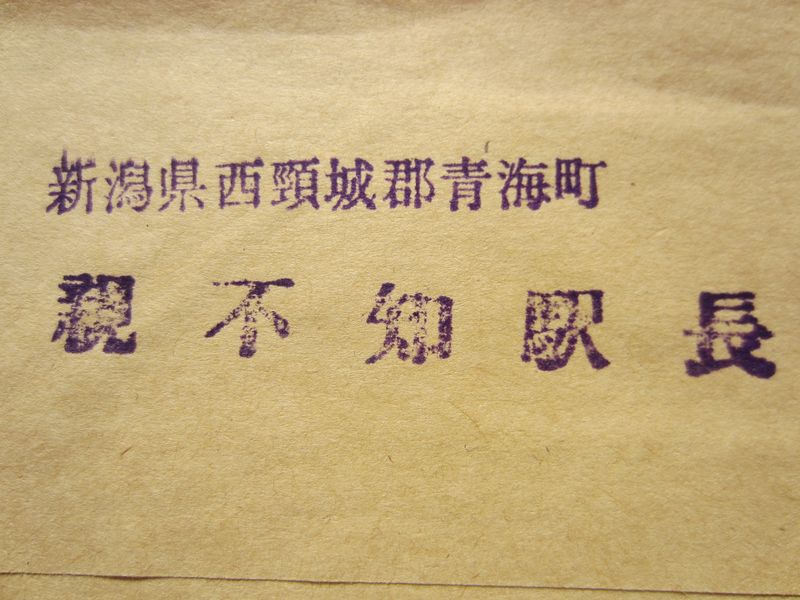 新潟県西頸城郡青海町
親不知駅長